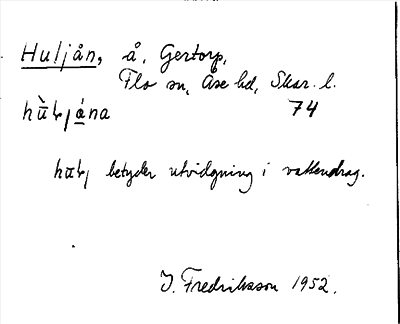 Huljån, å, Gertorp,
Flo sn, Åse hd, Skar. l.
hùłjána 74
hūłj betyder utvidgning i vattendrag.
I. Fredriksson 1952.